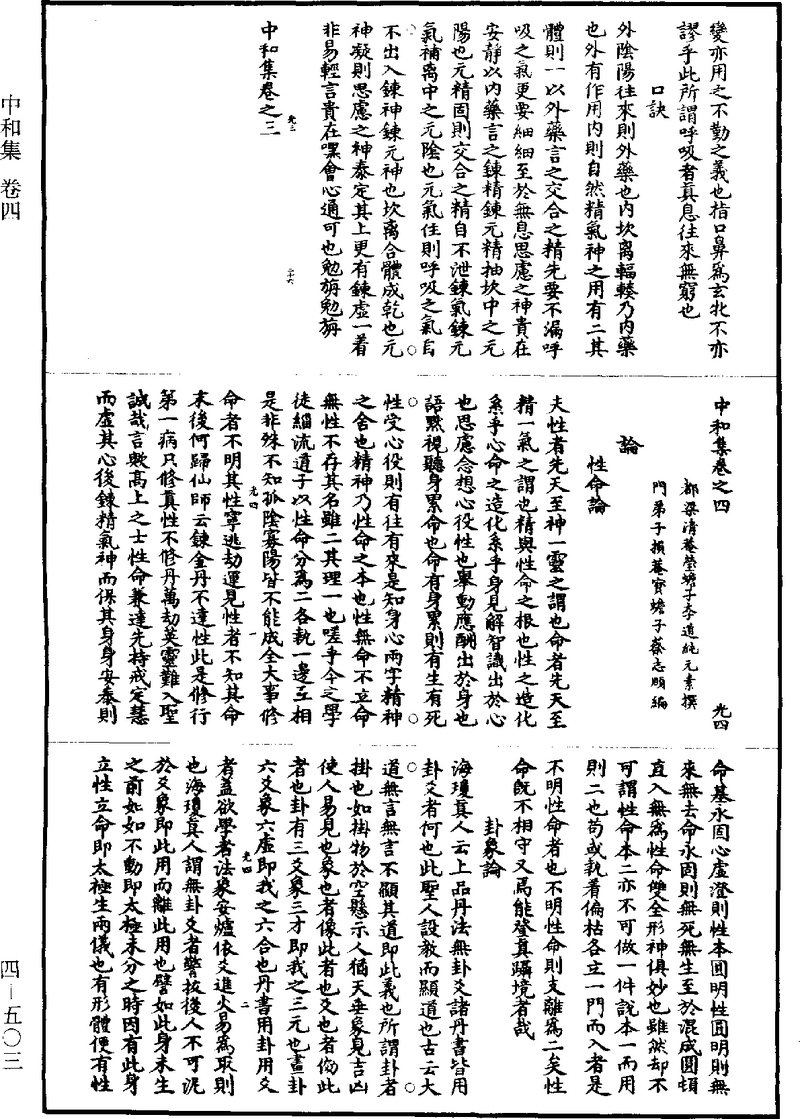 中和集 卷四
四-五〇三
變亦用之不勤之義也指口鼻為玄牝不亦
謬乎此所謂呼吸者真息往來無窮也
口訣
外陰陽往來則外藥也內坎离輻輳乃內藥
也外有作用內則自然精氣神之用有二其
體則一以外藥言之交合之精先要不漏呼
吸之氣更要細細至於無息思慮之神貴在
安靜以內藥言之鍊精鍊元精抽坎中之元
陽也元精固則交合之精自不泄鍊氣鍊元
氣補离中之元陰也元氣住則呼吸之氣自
不出入鍊神鍊元神也坎离合體成乾也元
神凝則思慮之神泰定其上更有鍊虛一着
非易輕言貴在嘿會心通可也勉旃勉旃
中和集卷之三
光三
二十六
中和集卷之四
光四
都梁清菴瑩蟾子李道純元素撰
門弟子損菴寶蟾子蔡志頤編
論
性命論
夫性者先天至神一靈之謂也命者先天至
精一氣之謂也精與性命之根也性之造化
系乎心命之造化系乎身見解智識出於心
也思慮念想心役性也舉動應酬出於身也
語默視聽身累命也命有身累則有生有死
性受心役則有往有來是知身心兩字精神
之舍也精神乃性命之本也性無命不立命
無性不存其名雖二其理一也嗟乎今之學
徒緇流道子以性命分為二各執一邊互相
是非殊不知孤陰寡陽皆不能成全大事修
光四
一
命者不明其性寧逃劫運見性者不知其命
末後何歸仙師云鍊金丹不達性此是修行
第一病只修真性不修丹萬劫英靈難入聖
誠哉言歟高上之士性命兼達先持戒定慧
而虛其心後鍊精氣神而保其身身安泰則
命基永固心虛澄則性本圓明性圓明則無
來無去命永固則無死無生至於混成圓頓
直入無為性命雙全形神俱妙也雖然却不
可謂性命本二亦不可做一件說本一而用
則二也苟或執着偏枯各立一門而入者是
不明性命者也不明性命則支離為二矣性
命既不相守又焉能登真躡境者哉
卦象論
海瓊真人云上品丹法無卦爻諸丹書皆用
卦爻者何也此聖人設教而顯道也古云大
道無言無言不顯其道即此義也所謂卦者
掛也如掛物於空懸示人猶天垂象見吉凶
使人易見也象也者像此者也爻也者傚此
者也卦有三爻象三才即我之三元也畫卦
六爻象六虛即我之六合也丹書用卦用爻
光四
二
者蓋欲學者法象安爐依爻進火易為取則
也海瓊真人謂無卦爻者警拔後人不可泥
於爻象即此用而離此用也譬如此身未生
之前如如不動即太極未分之時因有此身
立性立命即太極生兩儀也有形體便有性